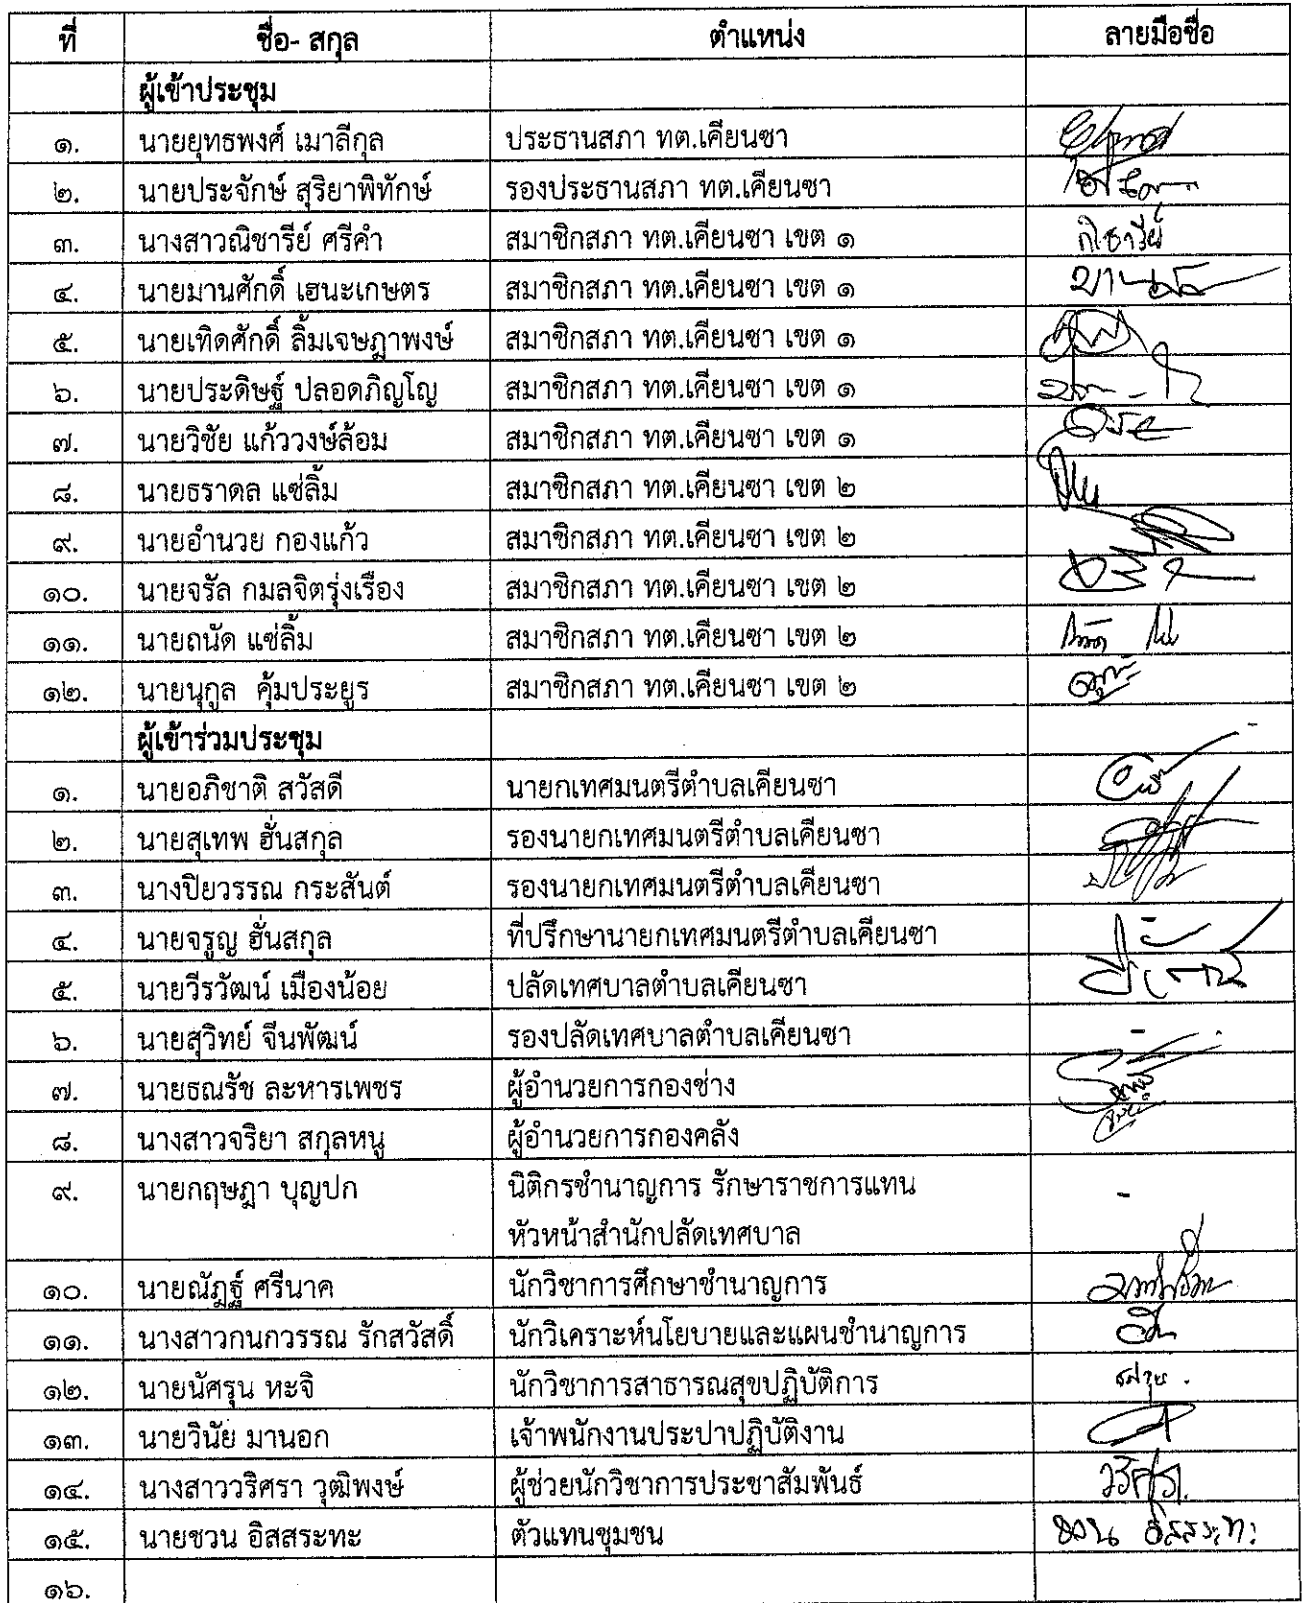 ที่ ชื่อ- สกุล ตำแหน่ง ลายมือชื่อ
ผู้เข้าประชุม
๑. นายยุทธพงศ์ เมาลีกุล ประธานสภา ทต.เคียนซา
๒. นายประจักษ์ สุริยาพิทักษ์ รองประธานสภา ทต.เคียนซา
๓. นางสาวณิชารีย์ ศรีคำ สมาชิกสภา ทต.เคียนซา เขต ๑
๔. นายมานศักดิ์ เฮนะเกษตร สมาชิกสภา ทต.เคียนซา เขต ๑
๕. นายเทิดศักดิ์ ลิ้มเจษฎาพงษ์ สมาชิกสภา ทต.เคียนซา เขต ๑
๖. นายประดิษฐ์ ปลอดภิญโญ สมาชิกสภา ทต.เคียนซา เขต ๑
๗. นายวิชัย แก้ววงษ์ล้อม สมาชิกสภา ทต.เคียนซา เขต ๑
๘. นายธราดล แซ่ลิ้ม สมาชิกสภา ทต.เคียนซา เขต ๒
๙. นายอำนวย กองแก้ว สมาชิกสภา ทต.เคียนซา เขต ๒
๑๐. นายจรัล กมลจิตรุ่งเรือง สมาชิกสภา ทต.เคียนซา เขต ๒
๑๑. นายถนัด แซ่ลิ้ม สมาชิกสภา ทต.เคียนซา เขต ๒
๑๒. นายนุกูล คุ้มประยูร สมาชิกสภา ทต.เคียนซา เขต ๒
ผู้เข้าร่วมประชุม
๑. นายอภิชาติ สวัสดี นายกเทศมนตรีตำบลเคียนซา
๒. นายสุเทพ ฮั่นสกุล รองนายกเทศมนตรีตำบลเคียนซา
๓. นางปิยวรรณ กระสันต์ รองนายกเทศมนตรีตำบลเคียนซา
๔. นายจรูญ ฮั่นสกุล ที่ปรึกษานายกเทศมนตรีตำบลเคียนซา
๕. นายวีรวัฒน์ เมืองน้อย ปลัดเทศบาลตำบลเคียนซา
๖. นายสุวิทย์ จีนพัฒน์ รองปลัดเทศบาลตำบลเคียนซา -
๗. นายธณรัช ละหารเพชร ผู้อำนวยการกองช่าง
๘. นางสาวจริยา สกุลหนู ผู้อำนวยการกองคลัง
๙. นายกฤษฎา บุญปก นิติกรชำนาญการ รักษาราชการแทน -
หัวหน้าสำนักปลัดเทศบาล
๑๐. นายณัฏฐ์ ศรีนาค นักวิชาการศึกษาชำนาญการ
๑๑. นางสาวกนกวรรณ รักสวัสดิ์ นักวิเคราะห์นโยบายและแผนชำนาญการ
๑๒. นายนัศรุน หะจิ นักวิชาการสาธารณสุขปฏิบัติการ
๑๓. นายวินัย มานอก เจ้าพนักงานประปาปฏิบัติงาน
๑๔. นางสาววริศรา วุฒิพงษ์ ผู้ช่วยนักวิชาการประชาสัมพันธ์
๑๕. นายชวน อิสสระทะ ตัวแทนชุมชน ชวน อิสสระทะ
๑๖.